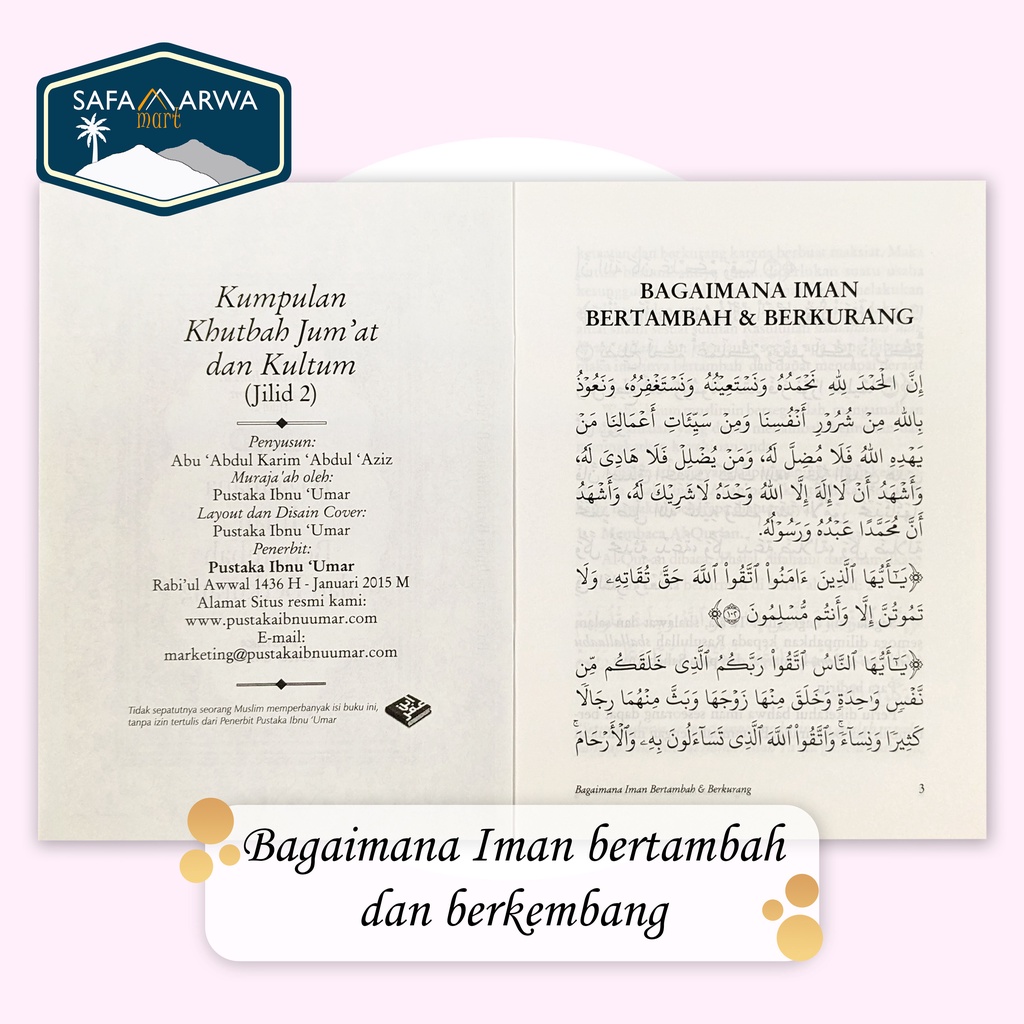 SAFA MARWA
mart
Kumpulan
Khutbah Jum'at
dan Kultum
(Jilid 2)
Penyusun:
Abu 'Abdul Karim 'Abdul 'Aziz
Muraja'ah oleh:
Pustaka Ibnu 'Umar
Layout dan Disain Cover:
Pustaka Ibnu 'Umar
Penerbit:
Pustaka Ibnu 'Umar
Rabi'ul Awwal 1436 H - Januari 2015 M
Alamat Situs resmi kami:
www.pustakaibnuumar.com
E-mail:
marketing@pustakaibnuumar.com
Tidak sepatutnya seorang Muslim memperbanyak isi buku ini,
tanpa izin tertulis dari Penerbit Pustaka Ibnu 'Umar
BAGAIMANA IMAN
BERTAMBAH & BERKURANG
إِنَّ الْحَمْدَ لِلَّهِ نَحْمَدُهُ وَنَسْتَعِيْنُهُ وَنَسْتَغْفِرُهُ، وَنَعُوْذُ
بِاللهِ مِنْ شُرُوْرِ أَنْفُسِنَا وَمِنْ سَيِّئَاتِ أَعْمَالِنَا مَنْ
يَهْدِهِ اللهُ فَلَا مُضِلَّ لَهُ، وَمَنْ يُضْلِلْ فَلَا هَادِيَ لَهُ،
وَأَشْهَدُ أَنْ لَا إِلَهَ إِلَّا اللهُ وَحْدَهُ لَا شَرِيْكَ لَهُ، وَأَشْهَدُ
أَنَّ مُحَمَّدًا عَبْدُهُ وَرَسُوْلُهُ.
﴿يَٰٓأَيُّهَا ٱلَّذِينَ ءَامَنُوا۟ ٱتَّقُوا۟ ٱللَّهَ حَقَّ تُقَاتِهِۦ وَلَا
تَمُوتُنَّ إِلَّا وَأَنتُم مُّسْلِمُونَ ١٠٢﴾
﴿يَٰٓأَيُّهَا ٱلنَّاسُ ٱتَّقُوا۟ رَبَّكُمُ ٱلَّذِى خَلَقَكُم مِّن
نَّفْسٍ وَٰحِدَةٍ وَخَلَقَ مِنْهَا زَوْجَهَا وَبَثَّ مِنْهُمَا رِجَالًا
كَثِيرًا وَنِسَآءً ۚ وَٱتَّقُوا۟ ٱللَّهَ ٱلَّذِى تَسَآءَلُونَ بِهِۦ وَٱلْأَرْحَامَ ۚ
Bagaimana Iman Bertambah & Berkurang 3
Bagaimana Iman bertambah
dan berkembang